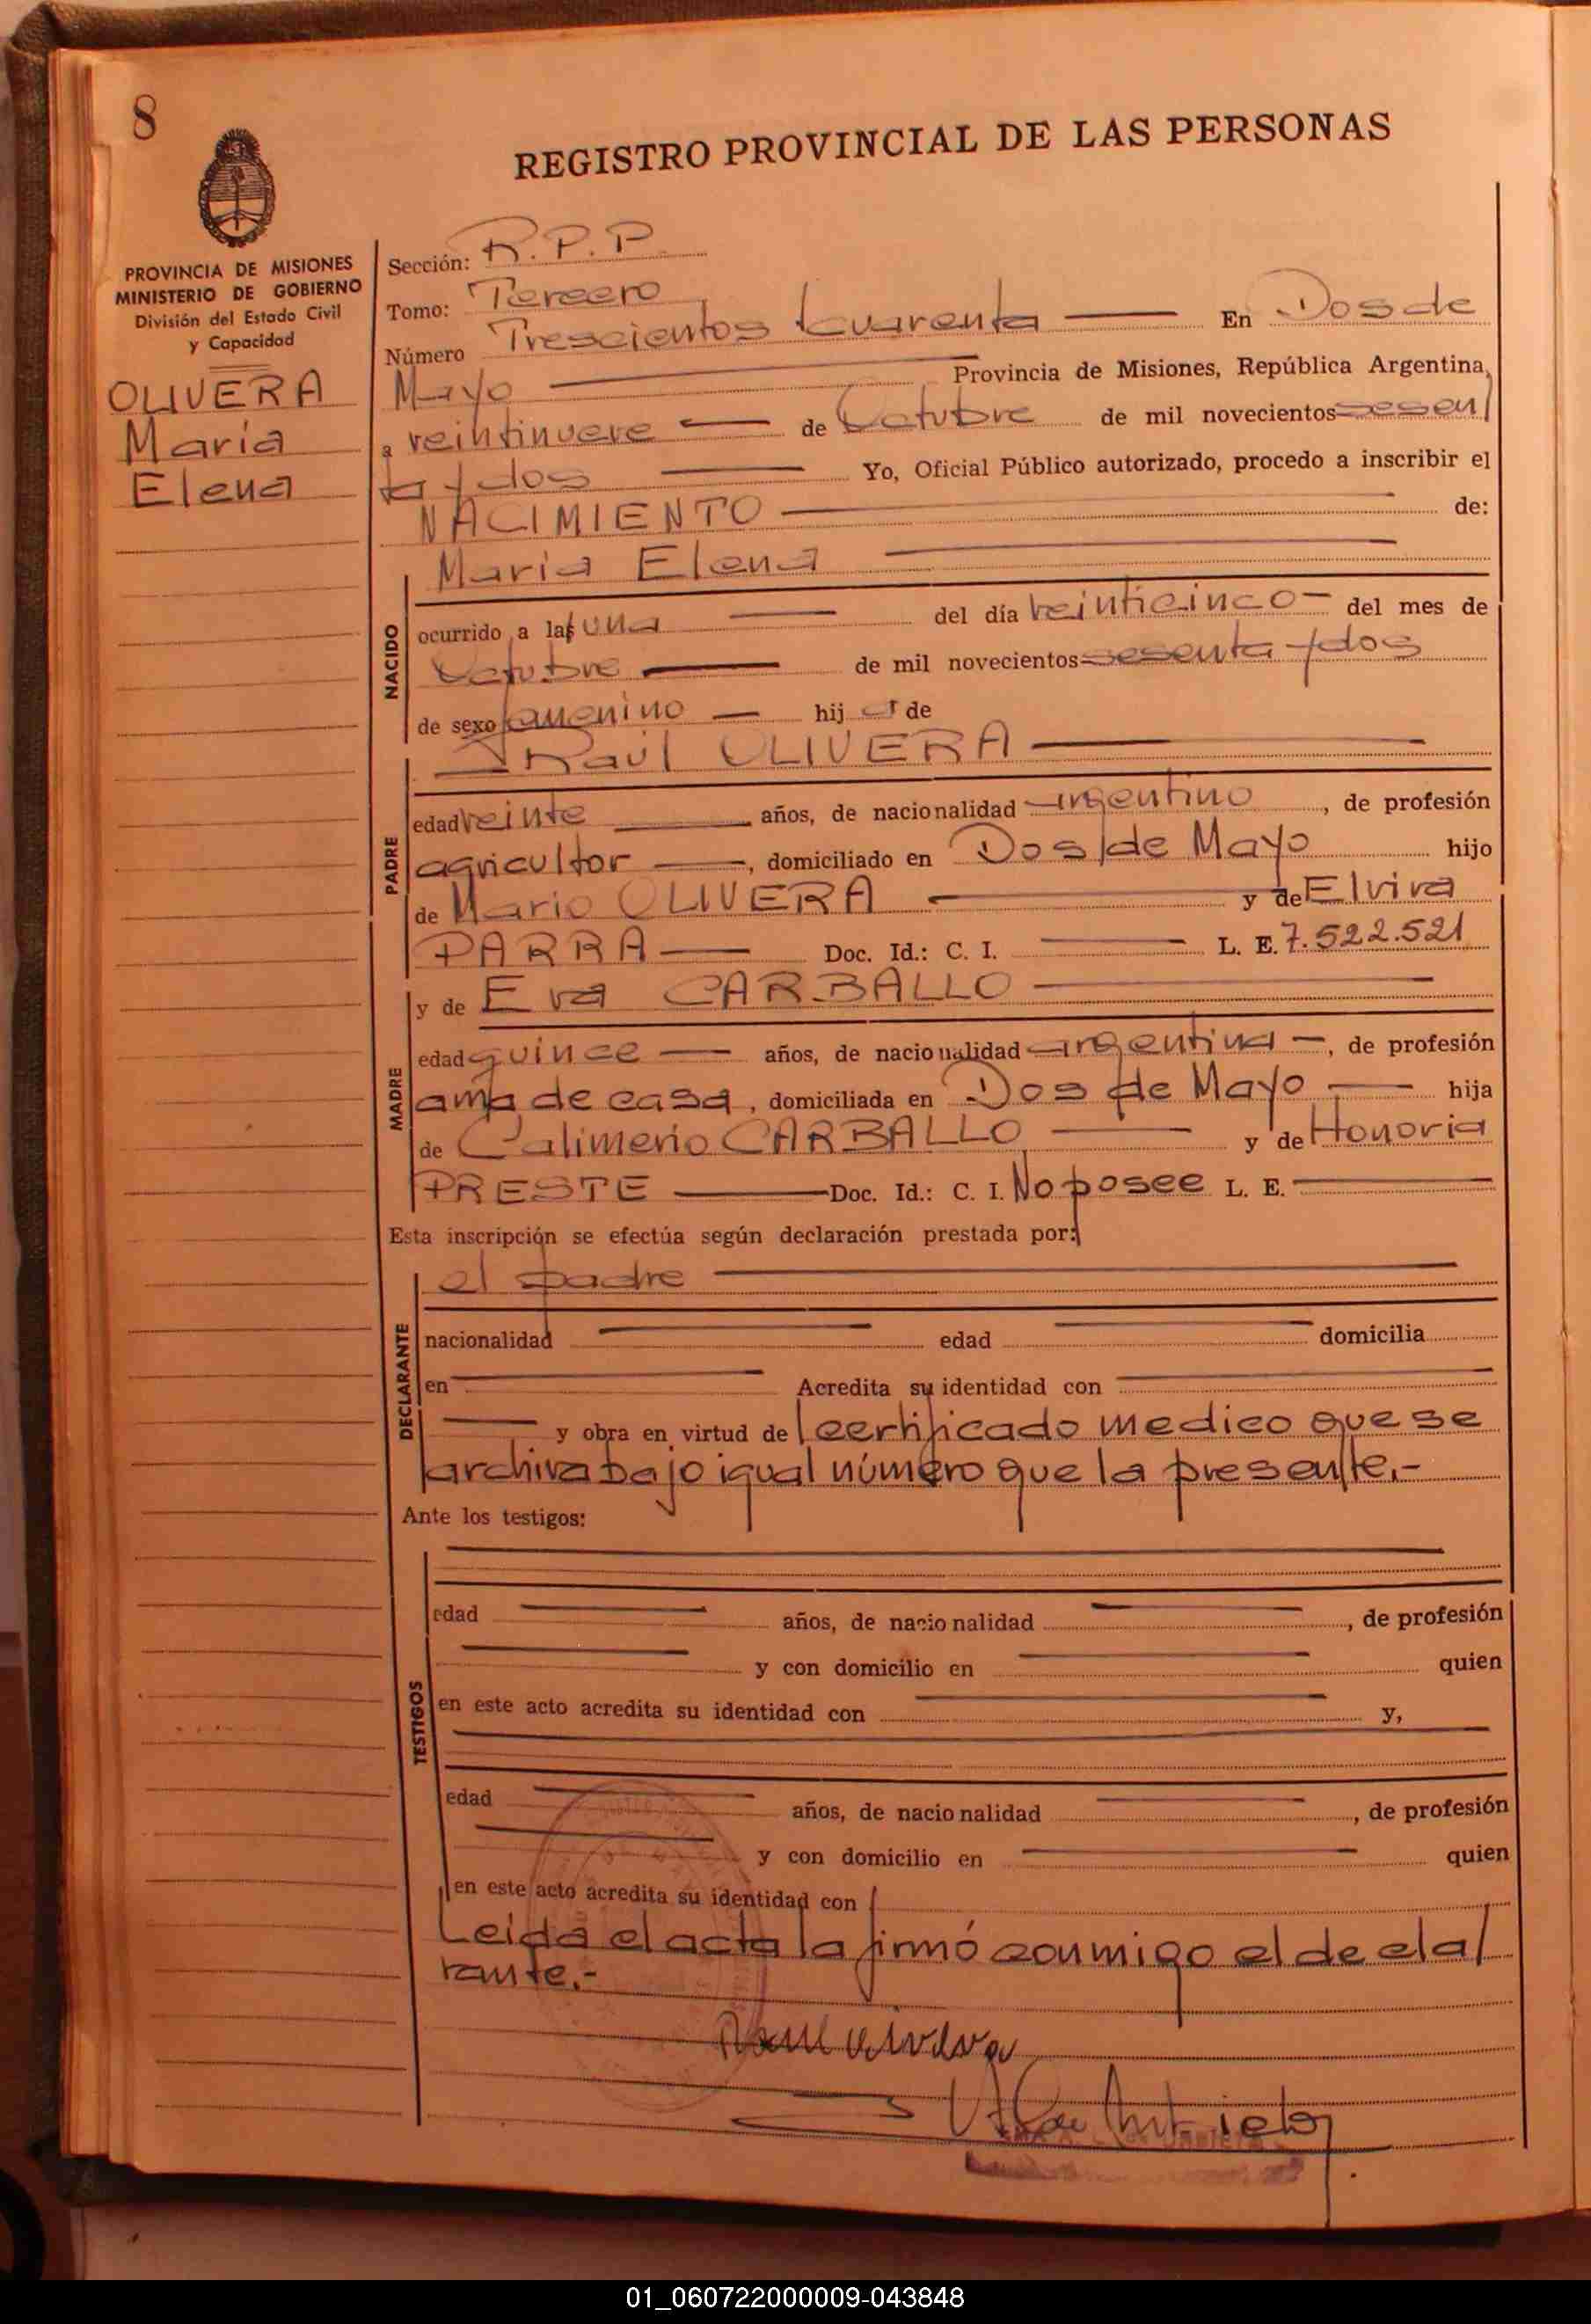 8
REGISTRO PROVINCIAL DE LAS PERSONAS
PROVINCIA DE MISIONES
MINISTERIO DE GOBIERNO
División del Estado Civil
y Capacidad
OLIVERA
María
Elena
Sección: R.P.P.
Tomo: Tercero
Número Trescientos cuarenta En Dos de
Mayo Provincia de Misiones, República Argentina,
a veintinueve de Octubre de mil novecientos sesen/
ta y dos Yo, Oficial Público autorizado, procedo a inscribir el
NACIMIENTO de:
María Elena
NACIDO
ocurrido a las una del día veinticinco del mes de
Octubre de mil novecientos sesenta y dos
de sexo femenino hij a de
Raúl OLIVERA
PADRE
edad veinte años, de nacionalidad argentino, de profesión
agricultor, domiciliado en Dos de Mayo hijo
de Mario OLIVERA y de Elvira
PARRA Doc. Id.: C. I. L. E. 7.522.521
y de Eva CARBALLO
MADRE
edad quince años, de nacionalidad argentina, de profesión
ama de casa, domiciliada en Dos de Mayo hija
de Calimerio CARBALLO y de Honoria
PRESTE Doc. Id.: C. I. No posee L. E.
Esta inscripción se efectúa según declaración prestada por:
el padre
DECLARANTE
nacionalidad edad domicilia
en Acredita su identidad con
y obra en virtud de certificado medico que se
archiva bajo igual número que la presente.-
Ante los testigos:
TESTIGOS
edad años, de nacionalidad, de profesión
y con domicilio en quien
en este acto acredita su identidad con y,
edad años, de nacionalidad, de profesión
y con domicilio en quien
en este acto acredita su identidad con
Leida el acta la firmó conmigo el decla/
rante.-
Raul olivera
01_060722000009-043848